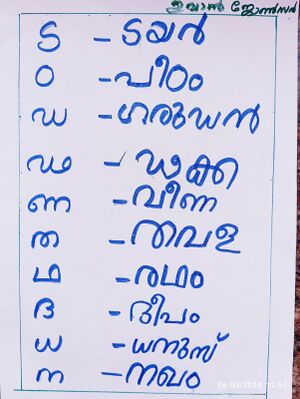 ഇവാൻ ജോൺസൻ
ട - ടയർ
ഠ - പീഠം
ഡ - ഗരുഡൻ
ഢ - ഢക്ക
ണ - വീണ
ത - തവള
ഥ - രഥം
ദ - ദീപം
ധ - ധനുസ്
ന - നഖം
06/03/2024 12:57